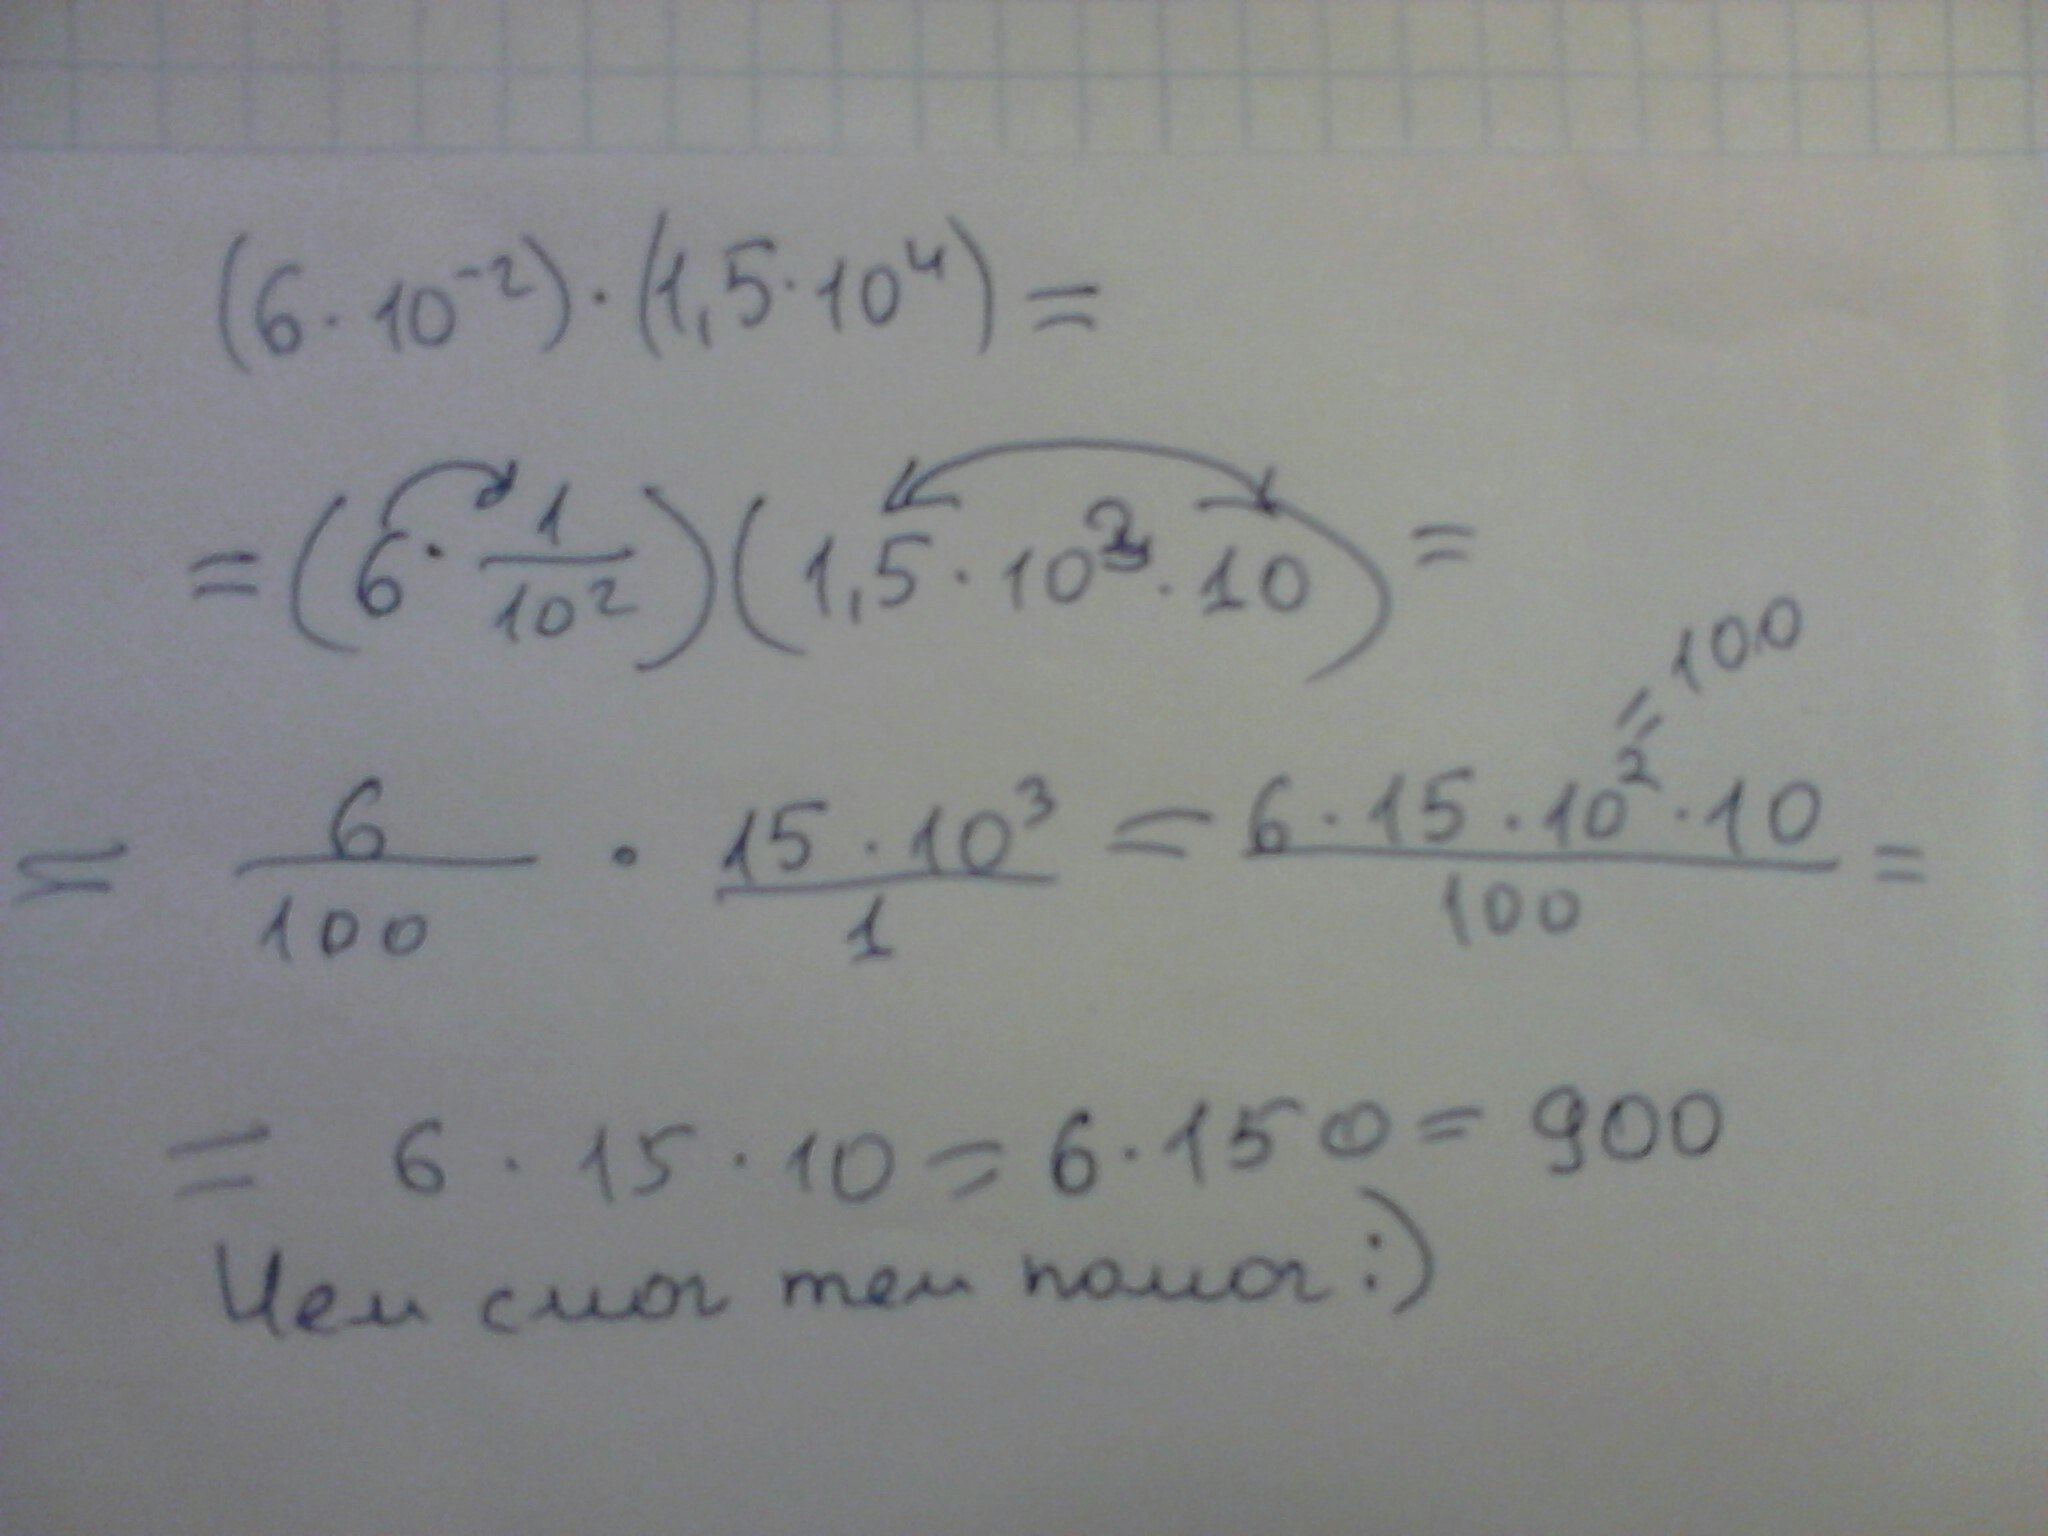 (6·10⁻²)·(1,5·10⁴)=
=(6·1/10²)(1,5·10³·10)=
=100
= 6/100 · 15·10³/1 = 6·15·10²·10/100 =
= 6·15·10=6·150=900
Чем смог тем помог:)